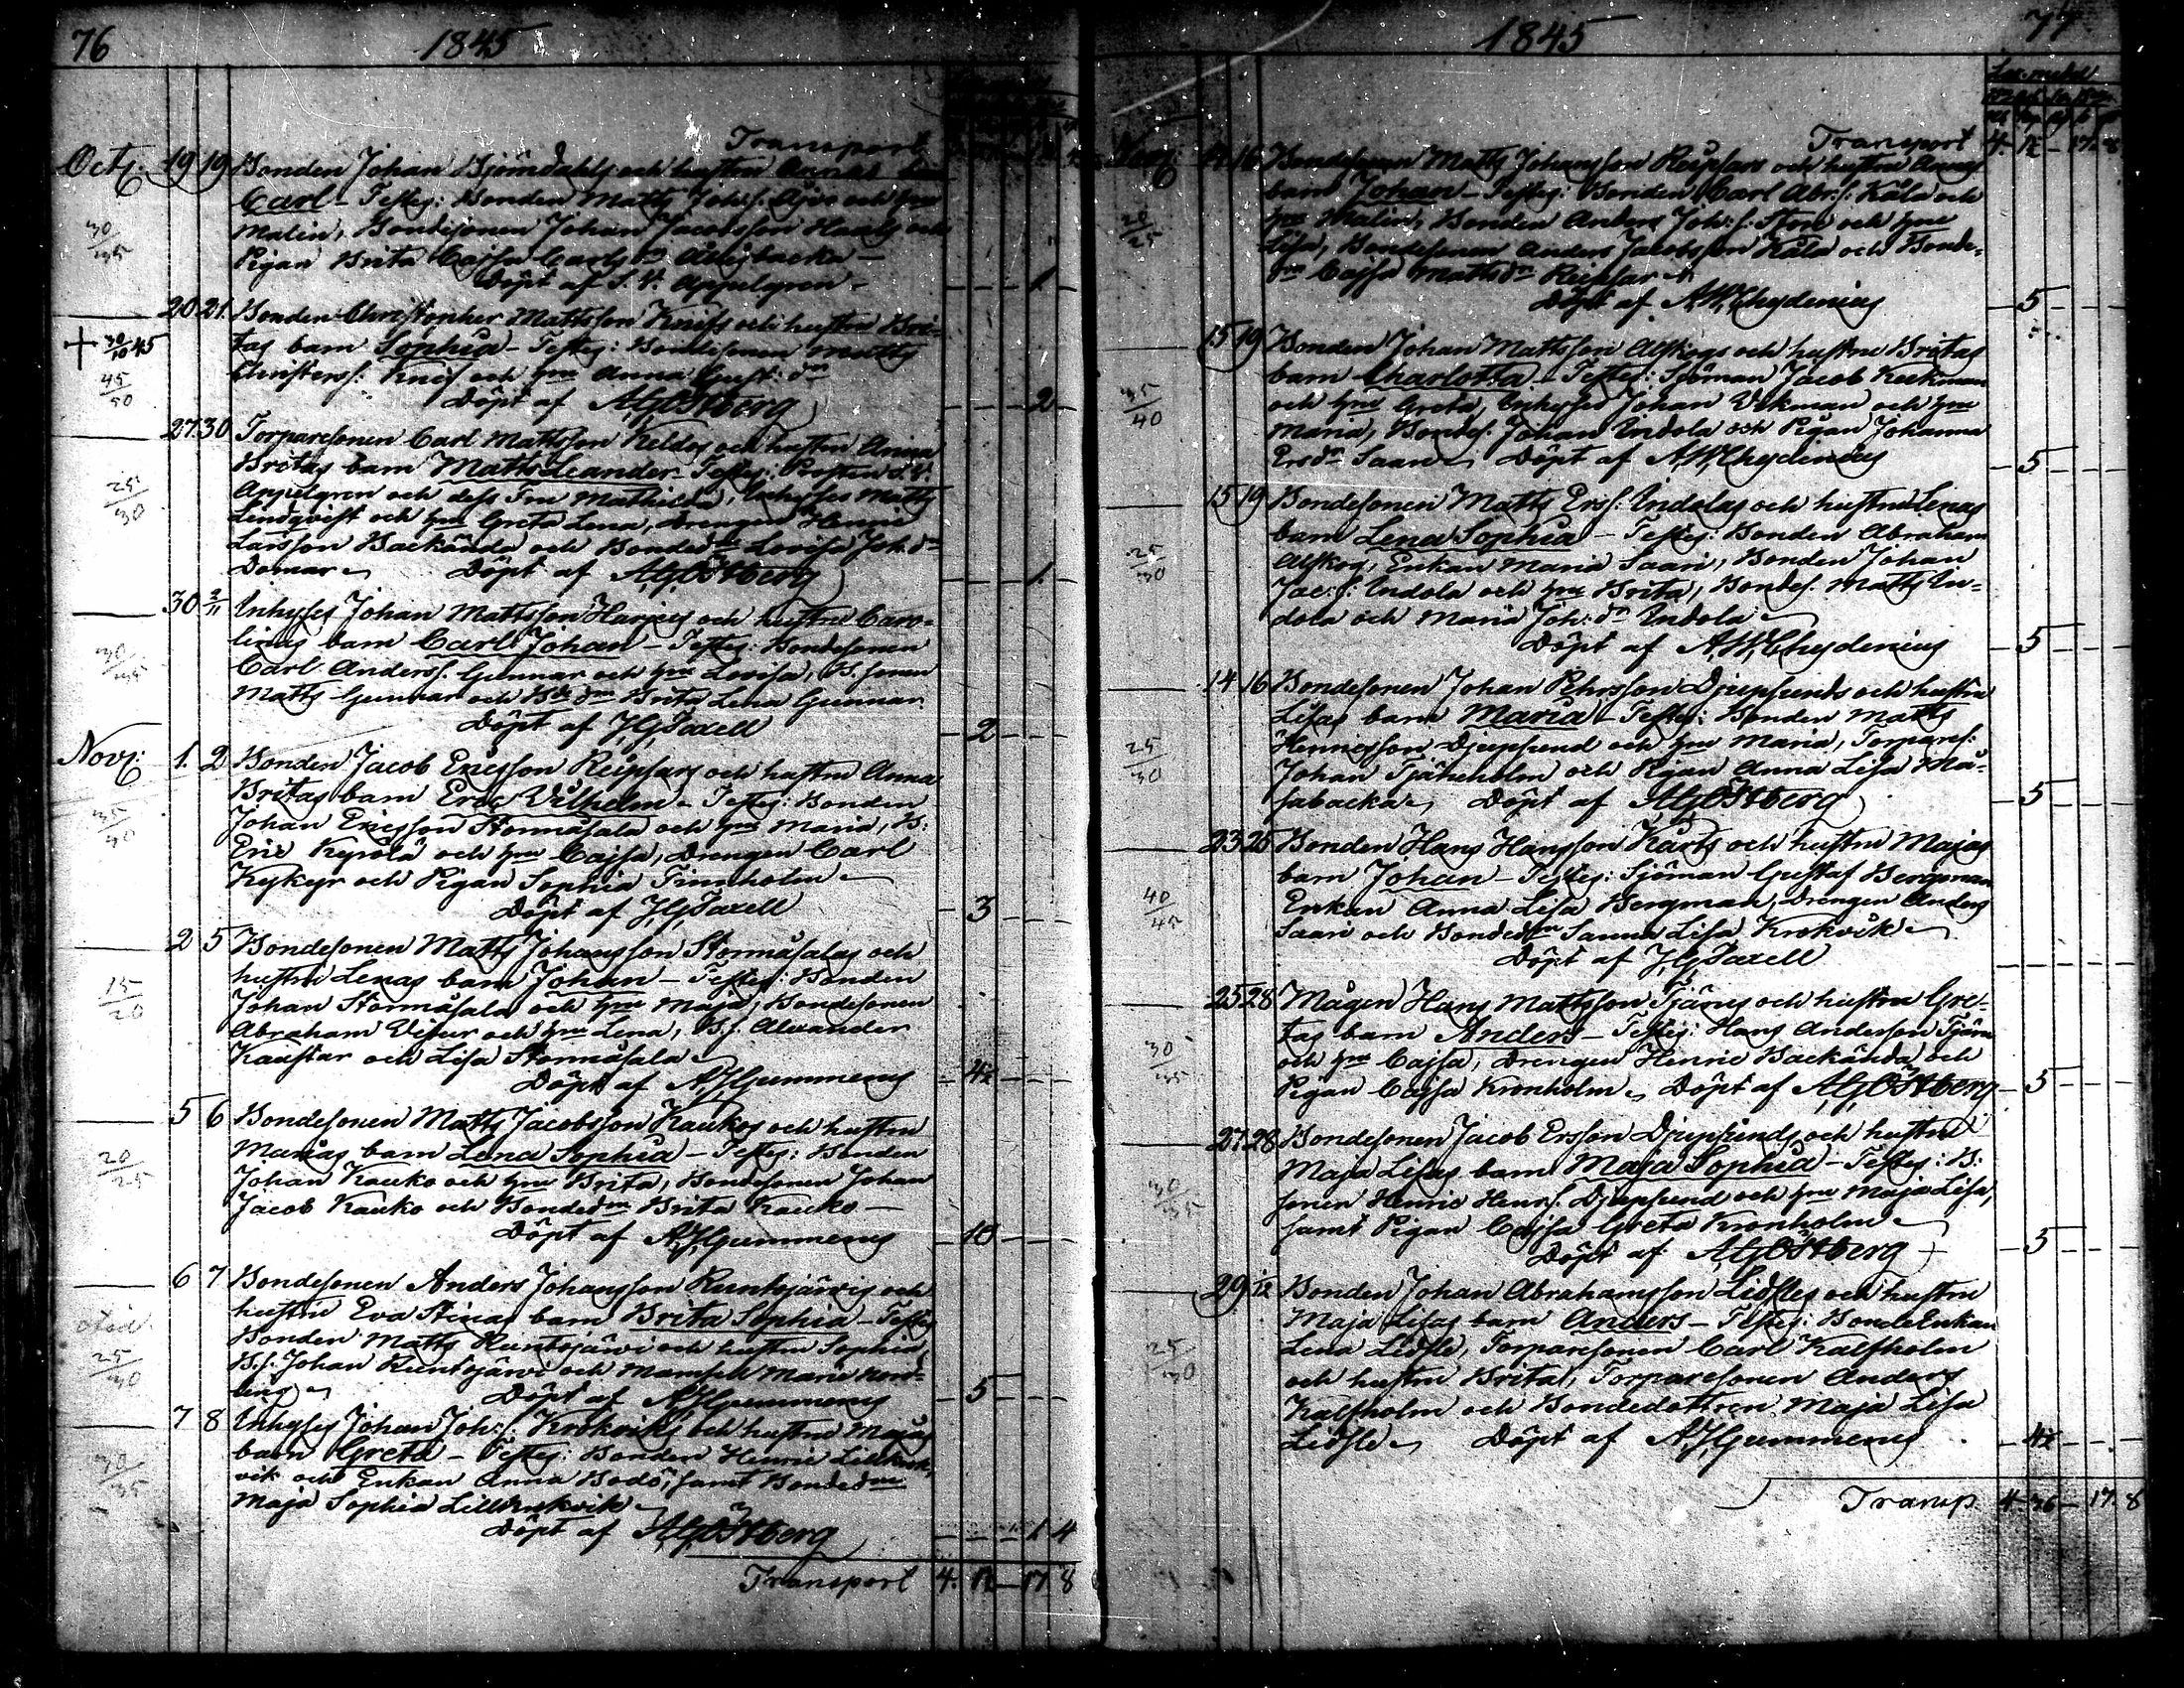 76
1845
Transport
Octb: 19 19 Bonden Johan Björndahls och hustru Annas barn
Carl - Testes: Bonden Matts Johs. och hru
30/35
Malin, Bondesonen Johan Jacobsson Haals och
Pigan Brita Cajsa Carls dr Åbäcka -
Döpt af S. V. Appelgren - 1
20 21 Bonden Christopher Mattsson Knifs och hustru Bri-
+ 30/10 45
tas barn Sophia - Testes: Bondesonen Matts
45/50
Christers. Knif och hru Anna Gust: dr
Döpt af A G Östberg 2
27 30 Torparesonen Carl Mattsson Keldos och hustru Anna
Britas barn Matts Leander - Testes: Prosten S. V.
25/30
Appelgren och dess Fru Mathilda, Inhyses Matts
Lindqvist och hru Greta Lena, Drengen Henric
Larsson Backända och Bonded:r Lovisa Joh. dr
Domar Döpt af A G Östberg 1
30 2/11 Inhyses Johan Mattsson Harjus och hustru Caro-
linas barn Carl Johan - Testes: Bondesonen
30/35
Carl Anders. Gunnar och hru Lovisa, B. sonen
Matts Gunnar och B:de dr Brita Lena Gunnar
Döpt af J G Taxell 2
Novb: 1. 2 Bonden Jacob Ericsson Reipsars och hustru Anna
Britas barn Eric Wilhelm - Testes: Bonden
35/40
Johan Ericsson Stormåsala och hru Maria, B:
Eric Kyrölä och hru Cajsa, Drengen Carl
Kykyr och Pigan Sophia Timmholm
Döpt af J G Taxell 3
2 5 Bondesonen Matts Johansson Stormåsalas och
hustru Lenas barn Johan - Testes: Bonden
15/20
Johan Stormåsala och hru Maja, Bondesonen
Abraham Visur och hru Lena, B.s. Alexander
Kaustar och Lisa Stormåsala
Döpt af A J Gummerus 4½
5 6 Bondesonen Matts Jacobsson Kaukos och hustru
Marias barn Lena Sophia - Testes: Bonden
20/25
Johan Kauko och hru Brita, Bondesonen Johan
Jacob Kauko och Bonded:r Brita Kauko -
Döpt af A J Gummerus 10
6 7 Bondesonen Anders Johansson Runtujärvis och
hustru Eva Stinas barn Brita Sophia - Testes
25/30
Bonden Matts Runtujärvi och hustru Sophia,
B.s. Johan Runtujärvi och Mamsell Marie Nord-
ling Döpt af A J Gummerus 5
7 8 Inhyses Johan Joh: s. Krokviks och hustru Majas
barn Greta - Testes: Bonden Henric Lillkrok-
30/35
vik och Enkan Anna Bodö, samt Bonded:r
Maja Sophia Lillkrokvik
Döpt af A G Östberg 1 4
Transport 4 - 17 8
1845
77
Transport 4 - 17. 8
Novb: 14 16 Bondesonen Matts Johansson Reipsars och hustru Annas
barn Johan - Testes: Bonden Carl Abr. s. Kåla och
20/25
hru Malin, Bonden Anders Joh: s. Stor och hru
Lisa, Bondesonen Anders Jacobsson Kåla och Bonde-
dr Cajsa Matts dr Reipsar
Döpt af A W Chydenius 5
15 19 Bonden Johan Mattsson Alskogs och hustru Britas
barn Charlotta - Testes: Sjöman Jacob Keckman
35/40
och hru Greta, Inhyses Johan Wikman och hru
Maria, Bondes. Johan Indola och Pigan Johanna
Ers dr Saari Döpt af A W Chydenius 5
15 19 Bondesonen Matts Ers s. Indolas och hustru Lenas
barn Lena Sophia - Testes: Bonden Abraham
25/30
Alskog, Enkan Maria Saari, Bonden Johan
Jac: s. Indola och hru Brita, Bondes. Matts In-
dola och Maria Joh: dr Indola
Döpt af A W Chydenius 5
14 16 Bondesonen Johan Pehrsson Djupsunds och hustru
Lisas barn Maria - Testes: Bonden Matts
25/30
Henricsson Djupsund och hru Maria, Torpares:
Johan Tjäruholm och Pigan Anna Lisa Må-
sabacka Döpt af A G Östberg 5
23 25 Bonden Hans Hansson Karts och hustru Majas
barn Johan - Testes: Sjöman Gustaf Bergman
40/45
Enkan Anna Lisa Bergman, Drengen Anders
Saari och Bonded:r Sanna Lisa Krokvik
Döpt af J G Taxell
25 28 Mågen Hans Mattsson Tjärus och hustru Gre-
tas barn Anders - Testes: Hans Andersson Tjäru
30/35
och hru Cajsa, Drengen Henric Backända och
Pigan Cajsa Kronholm Döpt af A G Östberg 5
27 28 Bondesonen Jacob Ersson Djupsunds och hustru
Maja Lisas barn Maja Sophia - Testes: B:
30/35
sonen Henric Henr s. Djupsund och hru Maja Lisa,
samt Pigan Cajsa Greta Kronholm
Döpt af A G Östberg 5
29 1/12 Bonden Johan Abrahamsson Lidfles och hustru
Maja Lisas barn Anders - Testes: BondeEnkan
25/30
Lena Lidfle, Torparesonen Carl Kalfholm
och hustru Brita, Torparesonen Anders
Kalfholm och Bondedottren Maja Lisa
Lidfle Döpt af A J Gummerus 4½
Transp. 4 36 - 17. 8